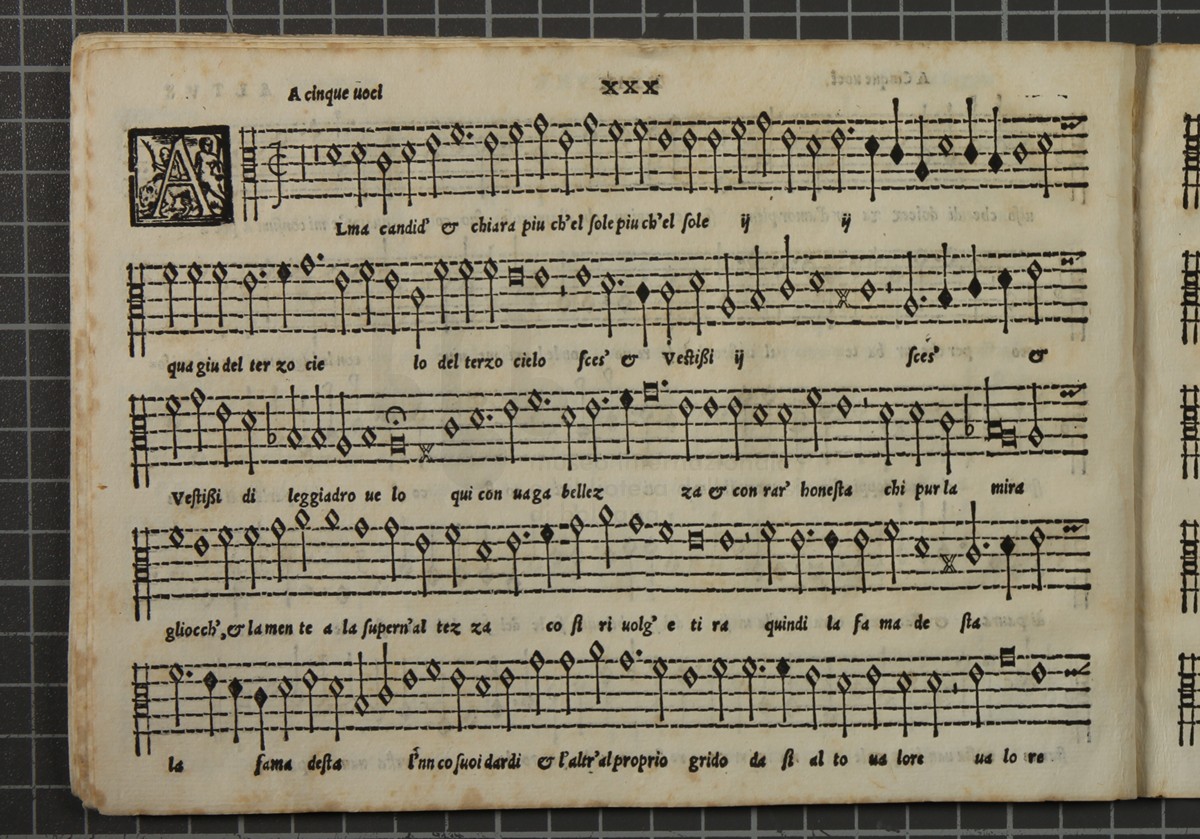 A cinque uoci
XXX
ALma candid' & chiara piu ch'el sole piu ch'el sole ij ij
qua giu del ter zo cie lo del terzo cielo sces' & Vestißi ij sces' &
Vestißi di leggiadro ue lo qui con uaga bellez za & con rar' honesta chi pur la mira
gliocch', & la men te a la supern'al tez za co si ri uolg' e ti ra quindi la fa ma de sta
la fama desta l'un co suoi dardi & l'altr'al proprio grido da si al to ua lore ua lo re